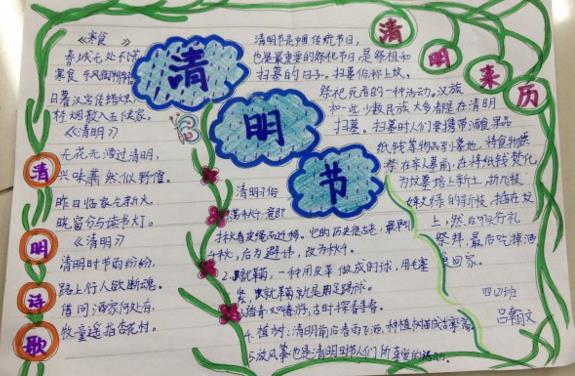 《寒食》
春城无处不飞
寒食
日暮汉宫传蜡烛
轻烟散入五侯家
《清明》
无花无酒过清明，
兴味萧然似野僧。
昨日邻家乞新火，
晓窗分与读书灯。
《清明》
清明时节雨纷纷，
路上行人欲断魂。
借问酒家何处有，
牧童遥指杏花村。
清
明
诗
歌
清
明
节
清明节是传统节日，
也是最重要的祭祀节日，是祭祖和
扫墓的日子。扫墓俗称上坟，
祭祀死者的一种活动。汉族
和一些少数民族大多都是在清明
扫墓。扫墓时人们要携带酒食果品
纸钱等物品到墓地，将食物供
祭在亲人墓前，在将纸钱焚化，
为坟墓培上新土，折几枝
绿的新枝插在坟
上，然后叩头行礼
祭拜，最后吃掉酒
回家。
清
明
来
历
清明习俗
秋千，后为避讳，改为秋千。
一种用皮革做成的球，
就是用足踢球。
古时探春
4.植树：清明前后春雨飞洒，种植树苗成
5.放风筝也是清明时节人们所喜爱的活动。
四(2)班